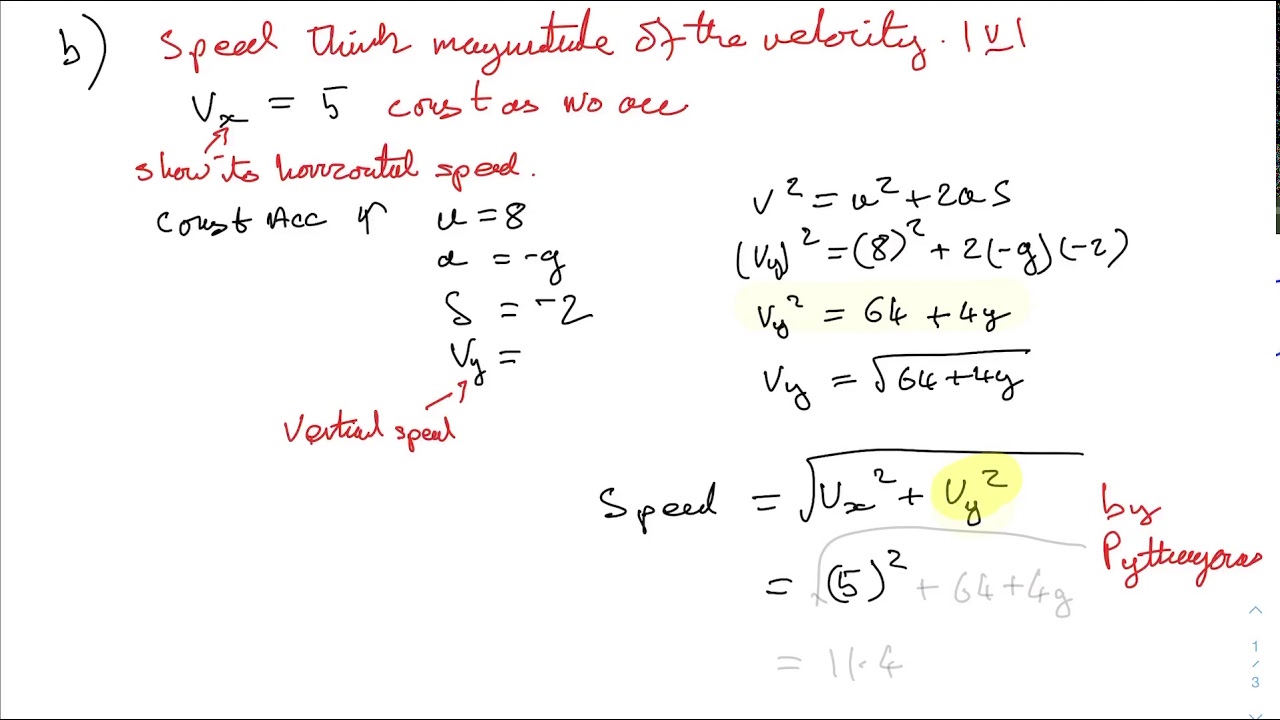 b) Speed think magnitude of the velocity. |v|
Vx = 5 const as no acc
show to horizontal speed.
const Acc u = 8
a = -g
S = -2
Vy =
Vertical speed
v² = u² + 2as
(Vy)² = (8)² + 2(-g)(-2)
Vy² = 64 + 4g
Vy = √64+4g
Speed = √Vx² + Vy²
by
Pythagoras
= √(5)² + 64 + 4g
= 11.4
1
/
3